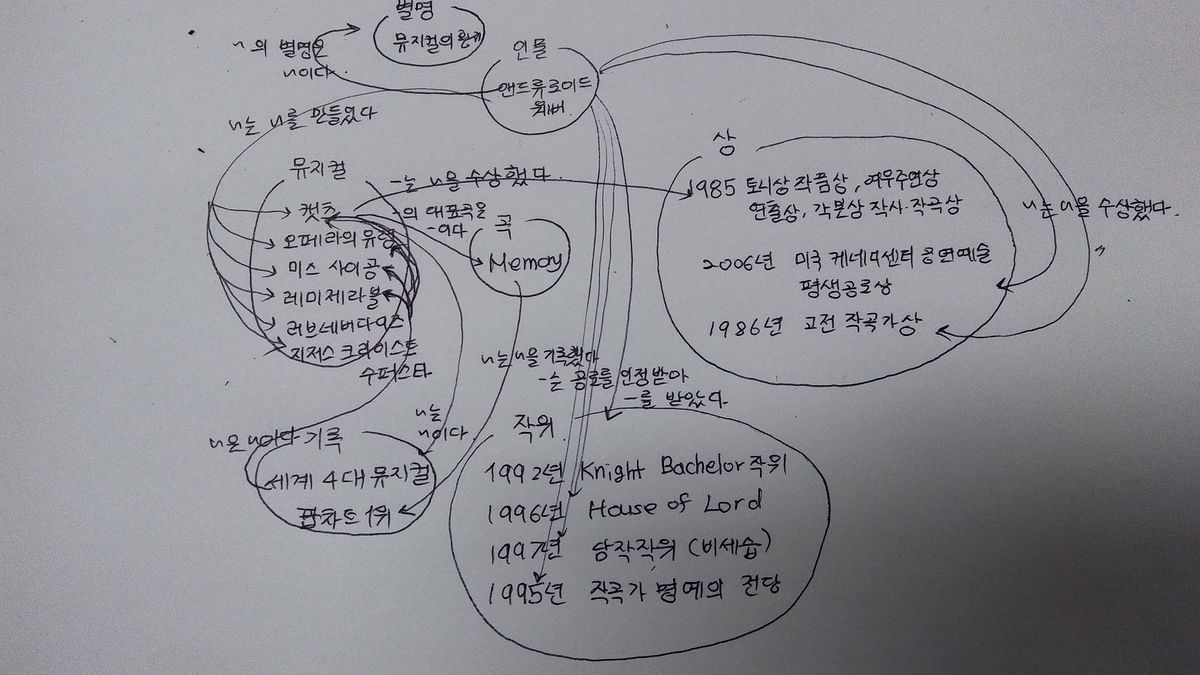 별명
뮤지컬의 황제
~의 별명은
~이다.
인물
앤드류로이드
웨버
~는 ~를 만들었다
뮤지컬
캣츠
오페라의 유령
미스 사이공
레미제라블
러브네버다이즈
지저스 크라이스트
수퍼스타
~는 ~을 수상했다.
~의 대표곡은
~이다
곡
Memory
상
1985 토니상 작품상, 여우주연상
연출상, 각본상 작사·작곡상
2006년 미국 케네디센터 공연예술
평생공로상
1986년 고전 작곡가상
~는 ~을 수상했다.
~는 ~을 기록했다
~는 공로를 인정받아
~를 받았다.
~는
~이다.
~은 ~이다
기록
세계 4대 뮤지컬
팝차트 1위
작위
1992년 Knight Bachelor 작위
1996년 House of Lord
1997년 남작작위 (비세습)
1995년 작곡가 명예의 전당